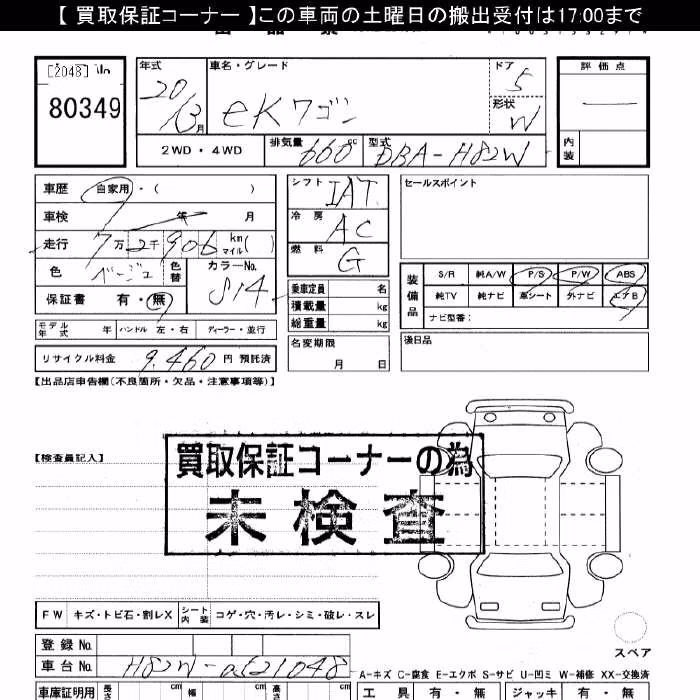 【 買取保証コーナー 】この車両の土曜日の搬出受付は17:00まで
[2048] No
80349
年式 車名・グレード ドア 評価点
20 / 13 月 eKワゴン 5
形状 W
2WD・4WD 排気量 660 cc 型式 DBA-H82W 内装
車歴 自家用・( )
車検 年 月
走行 7万2千906 km マイル( )
色 ベージュ 色替 カラーNo. S14
保証書 有・無
モデル年式 年 ハンドル 左・右 ディーラー・並行
リサイクル料金 9,460 円 預託済
シフト IAT
冷房 AC
燃料 G
乗車定員 名
積載量 kg
総重量 kg
名変期限
月 日
セールスポイント
装備品
S/R 純A/W P/S P/W ABS
純TV 純ナビ 革シート 外ナビ エアB
ナビ型番:
後日品
【出品店申告欄(不良箇所・欠品・注意事項等)】
【検査員記入】
買取保証コーナーの為
未検査
FW キズ・トビ石・割レX シート内装 コゲ・穴・汚レ・シミ・破レ・スレ
スペア
登録 No.
車台 No. H82W-
A-キズ C-腐食 E-エクボ S-サビ U-凹ミ W-補修 XX-交換済
車庫証明用 長さ cm 幅 cm 高さ cm
工具 有・無 ジャッキ 有・無